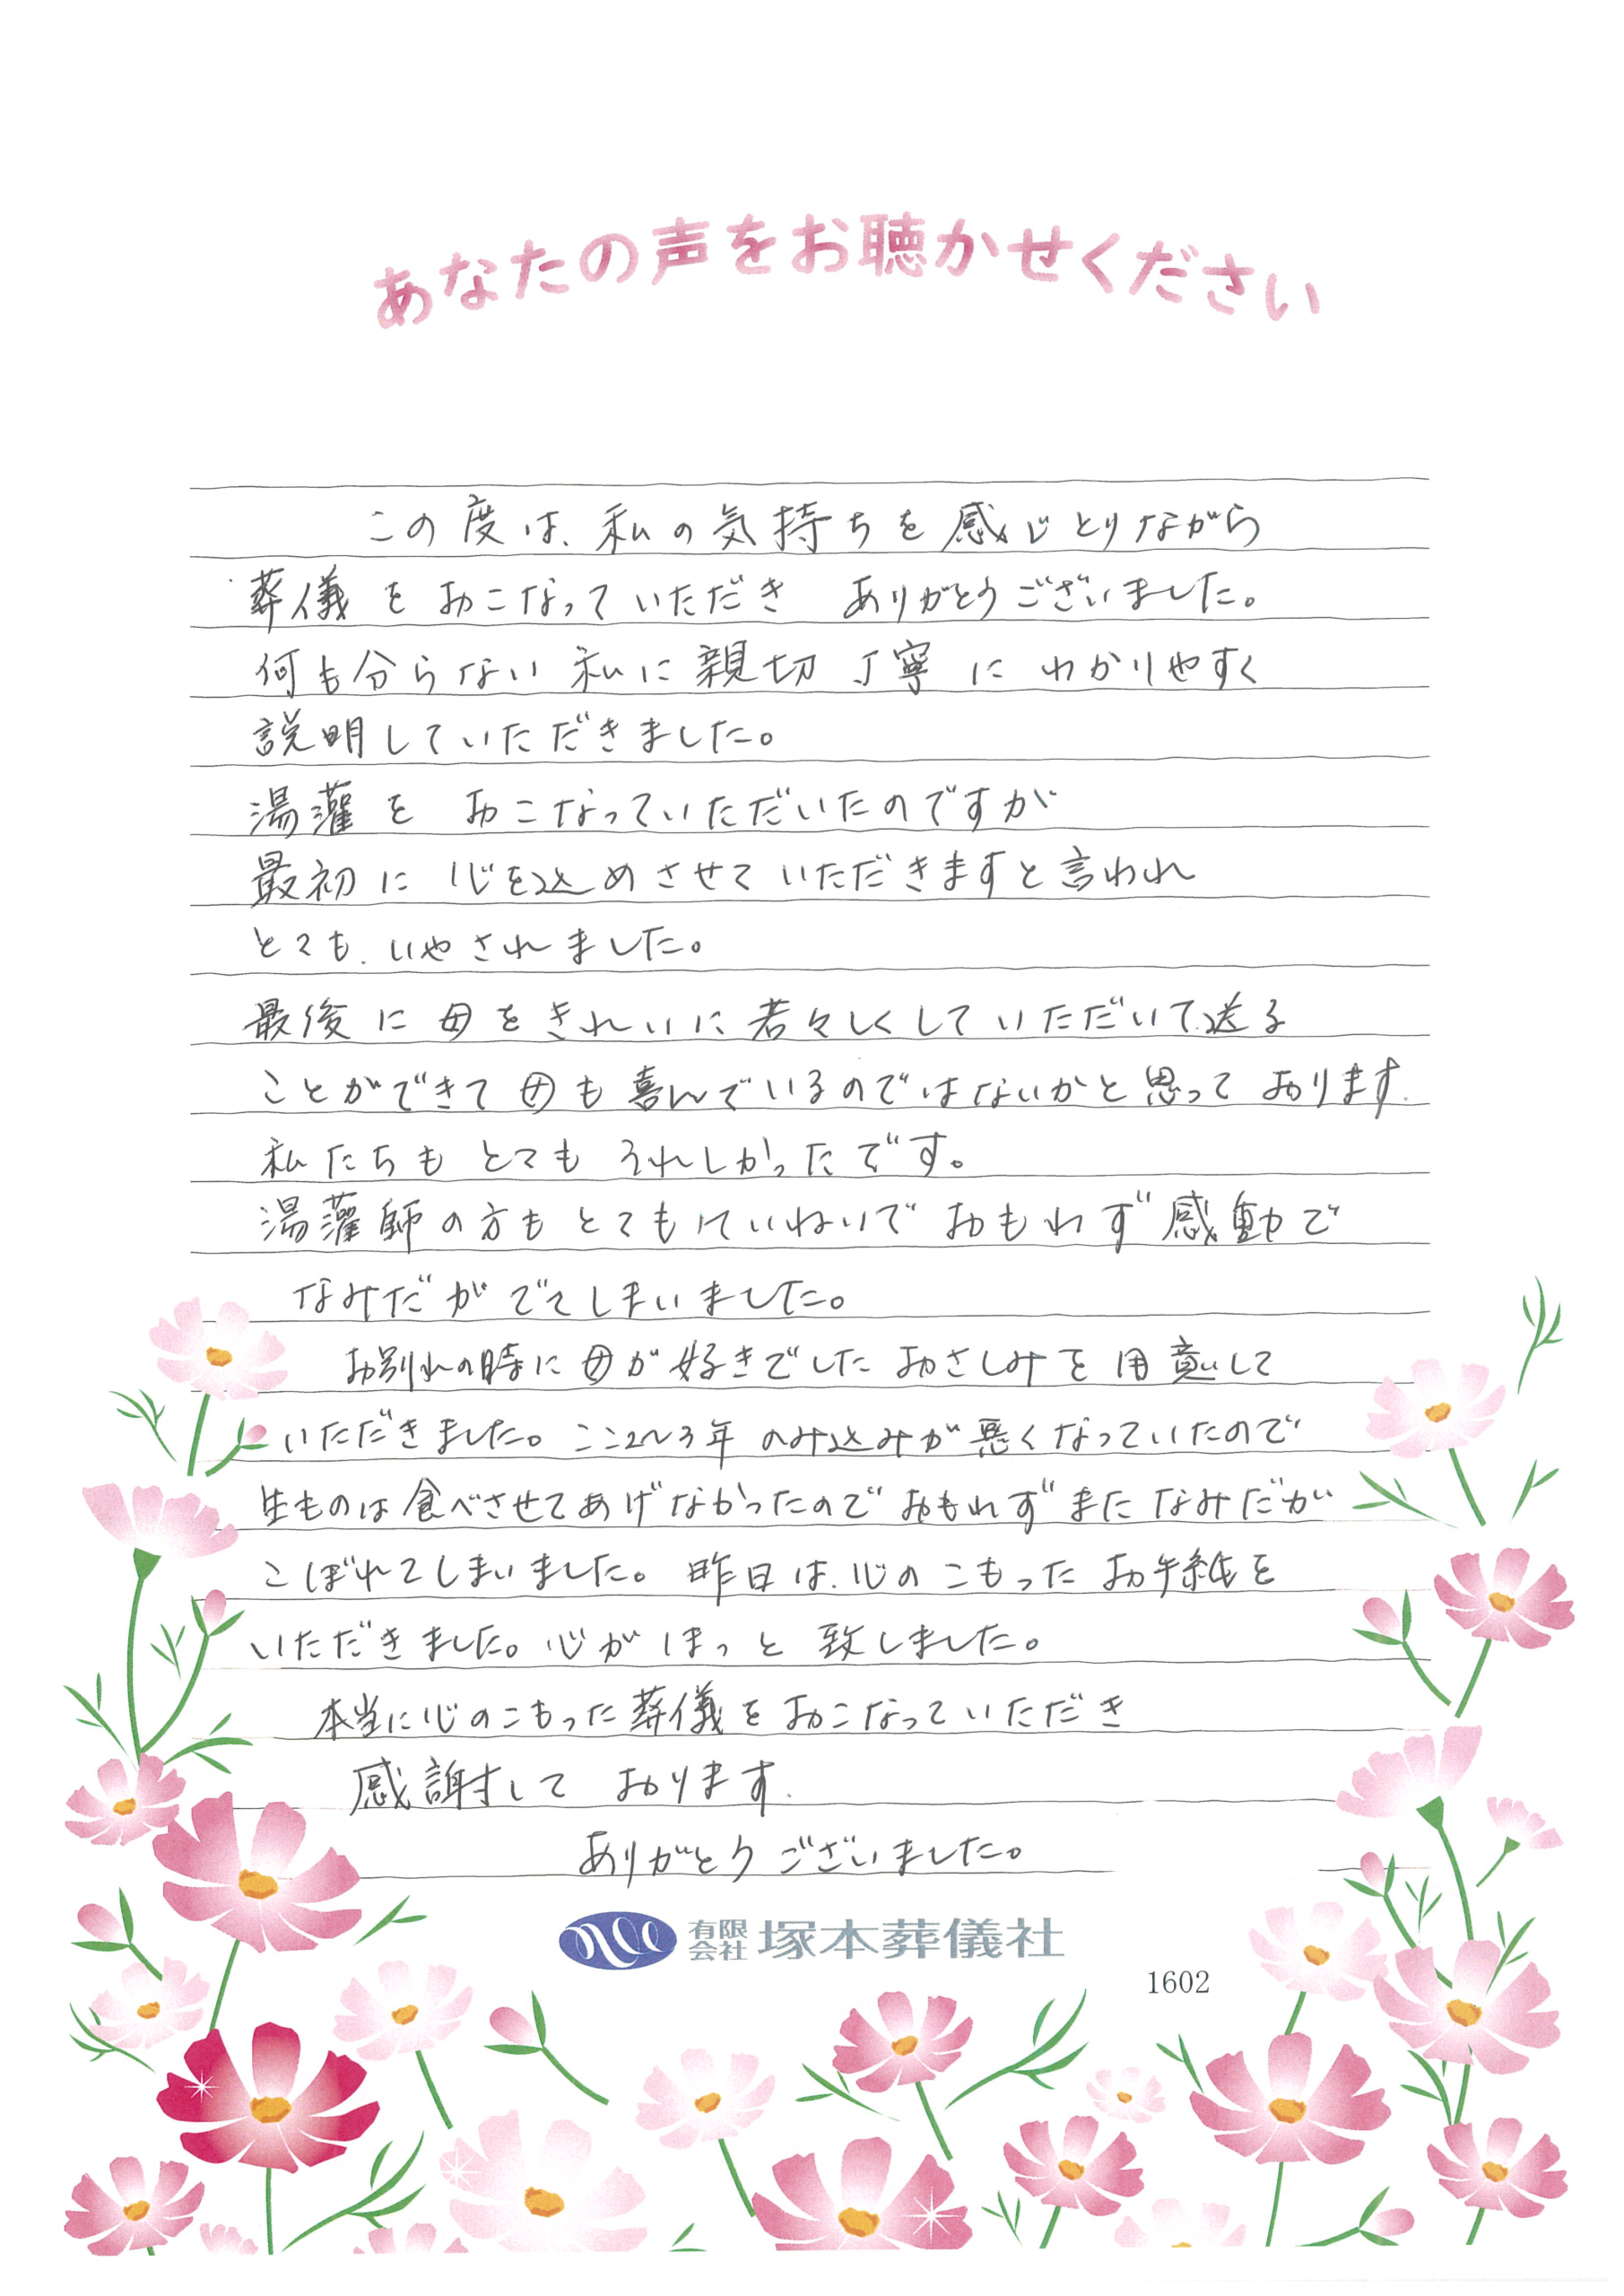 あなたの声をお聴かせください
この度は、私の気持ちを感じとりながら
葬儀を おこなっていただき ありがとうございました。
何も分らない 私に親切 丁寧 に わかりやすく
説明していただきました。
湯灌を おこなっていただいたのですが
最初に 心を込めさせていただきますと言われ
とても、いやされました。
最後に母をきれいに若々しくしていただいて、送る
ことができて母も喜んでいるのではないかと思って おります.
私たちも とても うれしかったです。
湯灌師の方も とてもていねいで おもわず感動で
なみだが でてしまいました。
お別れの時に母が好きでした おさしみを用意して
いただきました。ここ2〜3年 のみ込みが悪くなっていたので
生ものは食べさせてあげなかったので おもわず また なみだが
こぼれてしまいました。昨日は、心のこもった お手紙を
いただきました。心が ほっと 致しました。
本当に心のこもった葬儀を おこなっていただき
感謝して おります.
ありがとうございました。
有限会社 塚本葬儀社
1602